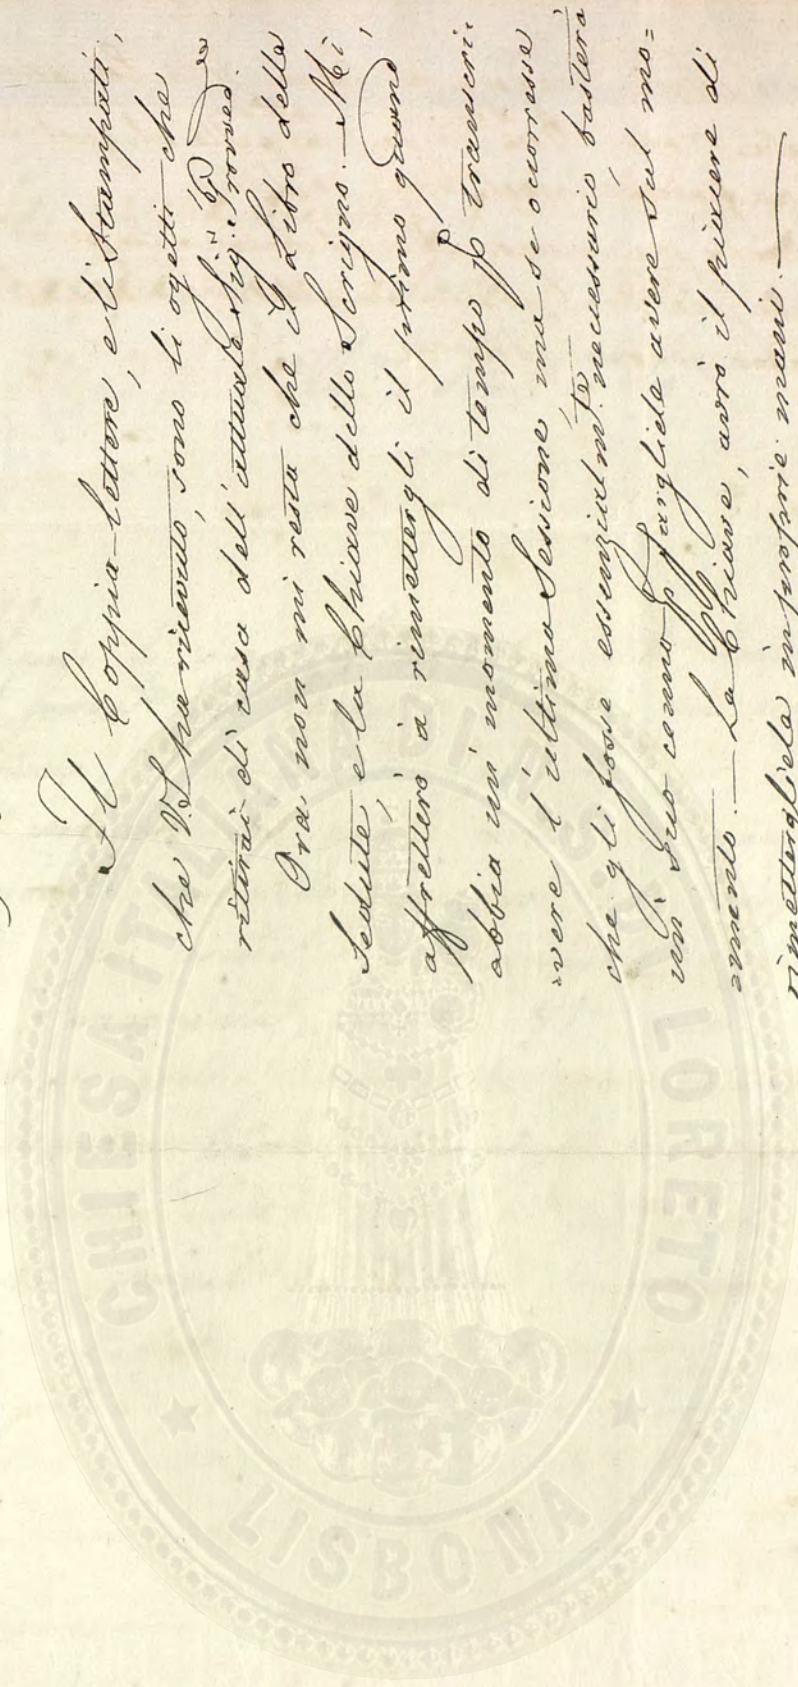 Il Coppia-lettere, e li Stampati,
che V.S. ha ricevuto, sono li ogetti che
ritirai di casa dell'attuale Sig.r Provved.e
Ora non mi resta che il Libro delle
Sedute, e la Chiave dello Scrigno. — Mi
affretterò à rimettergli il primo quand
abbia un momento di tempo p transcri=
=vere l'ultima Sessione ma se occorresse
che gli fosse essenzialm.te necessario, basterà
un suo cenno p fargliela avere sul mo=
=mento. — La Chiave, avrò il piacere di
rimettergliela in proprie mani. —
CHIESA ITALIANA DI N. S. DI LORETO
LISBONA